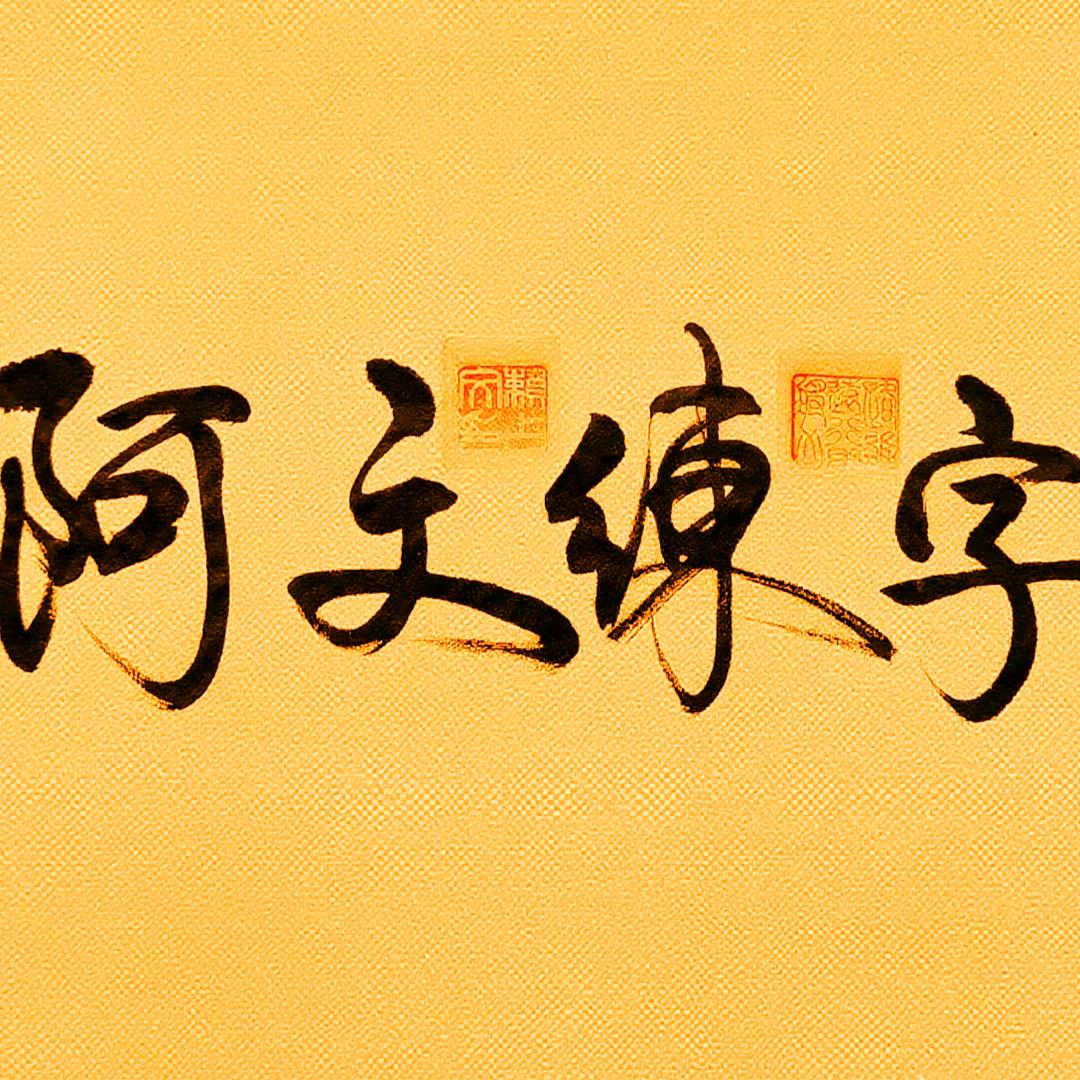 阿文練字